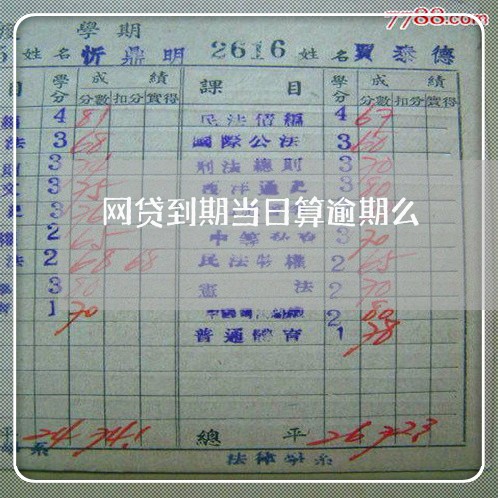 7788.com
學期
姓名 忻鼎明 2616 姓名 賈泰德
目 學分 成績 課目 學分 成績
分數 扣分 實得 分數 扣分 實得
4 81 民法債編 4 67
法 3 68 國際公法 3 60
3 刑法總則 3 70
文 3 75 西洋通史 3 80
网贷到期当日算逾期么
權 2 65 3 70
法 2 68 68 民法物權 2 65
3 80 憲法 2 70
1 70 2 80
普通體育 1 78
平 24 74.1 總平 26
系 法律學系